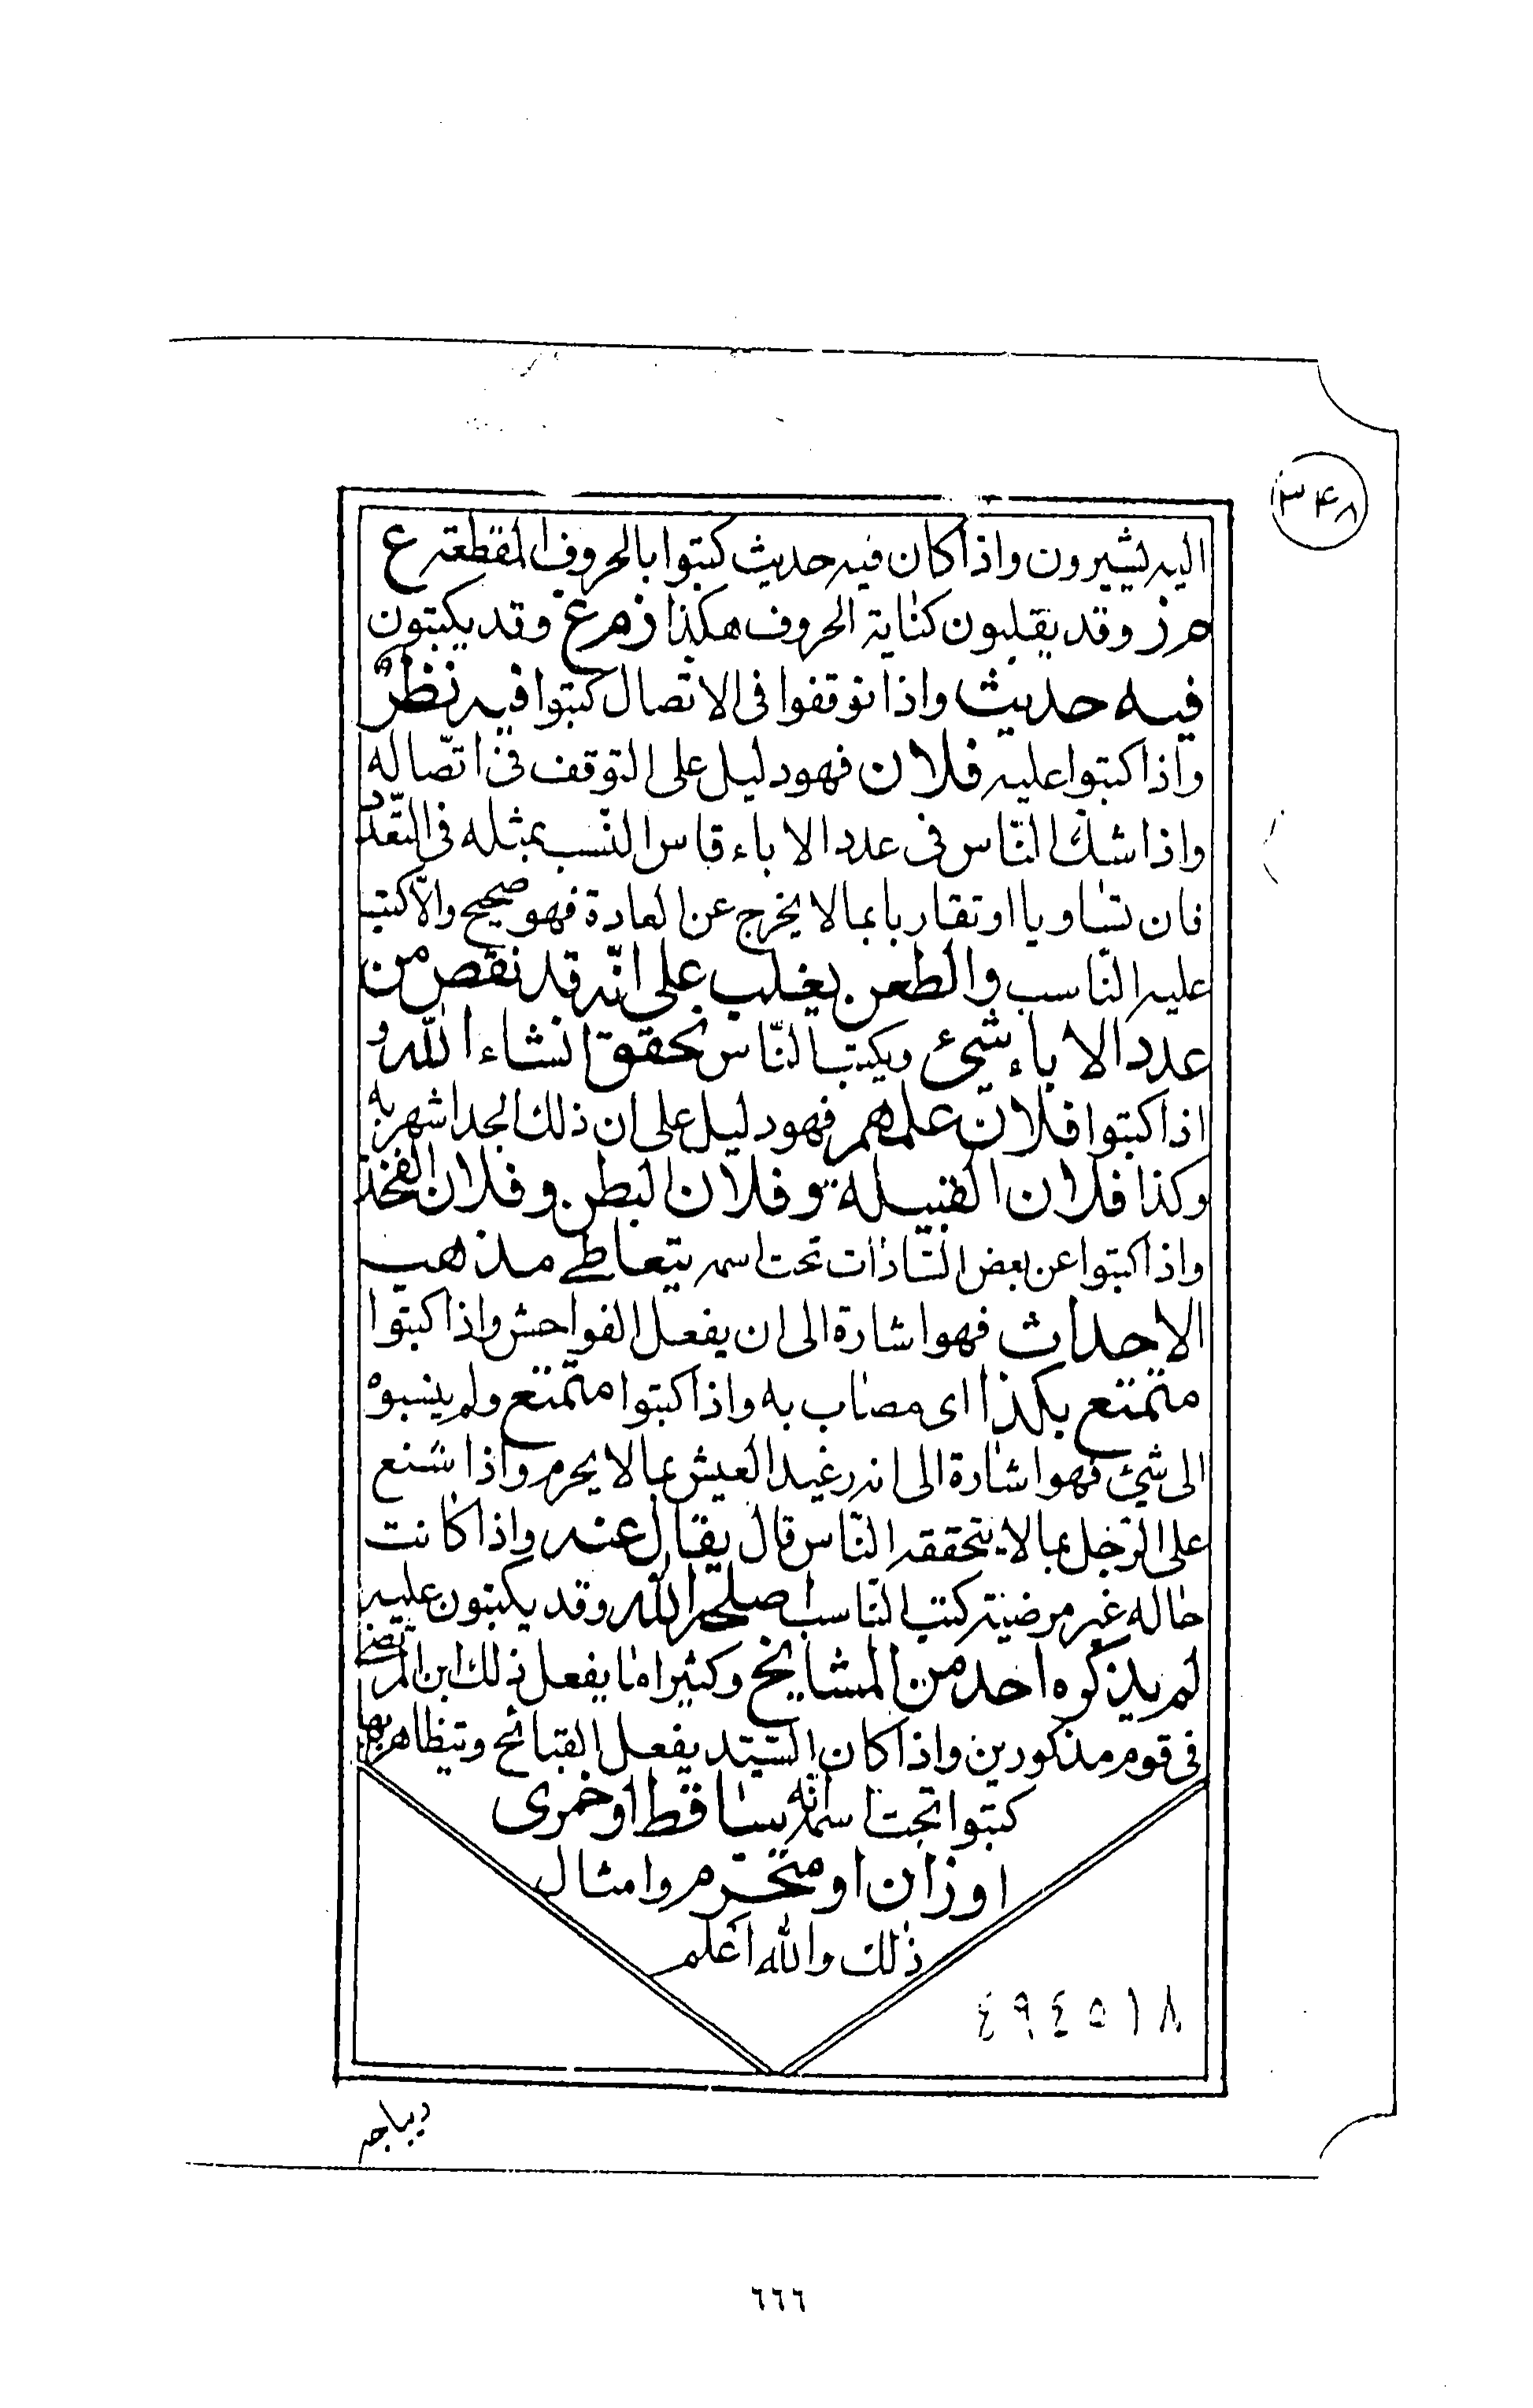 ٣٤٨
اليه يشيرون واذا كان فيه حديث كتبوا بالحروف المقطعة ع
م ز وقد يقلبون كناية الحروف هكذا ز م ع وقد يكتبون
فيه حديث واذا توقفوا فى الاتصال كتبوا فيه نظر
واذا كتبوا عليه فلان فهو دليل على التوقف فى اتّصاله
واذا شك النّاس فى عدد الاباء قاس النّسب بمثله فى التعّدد
فان تساويا او تقاربا بما لا يخرج عن العادة فهو صحيح والاّ كتب
عليه النّاسب والطعن يغلب على انّه قد نقص من
عدد الاباء شيئ ويكتب النّاس تحقق انشاء الله و
اذا كتبوا فلان علمهم فهو دليل على ان ذلك الجد اشهر به
وكذا فلان القبيلة و فلان البطن و فلان الفخذ
واذا كتبوا عن بعض السّادات تحت اسمه يتعاطى مذهب
الاحداث فهو اشارة الى ان يفعل الفواحش واذا كتبوا
متمتع بكذا اى مصاب به واذا كتبوا متمتع ولم ينسبوه
الى شيئ فهو اشارة الى انه رغيد العيش بما لا يحرم واذا شنع
على الرّجل بما لا يتحققه النّاس قال يقال عنه واذا كانت
حاله غير مرضية كتب النّاسب اصلحه الله وقد يكتبون عليه
لم يذكره احد من المشايخ وكثيرا ما يفعل ذلك ابن المرتضى
فى قوم مذكورين واذا كان السّيّد يفعل القبائح ويتظاهر بها
كتبوا تحت اسمه انّه ساقط او خمرى
او زان او متخرم وامثال
ذلك والله اعلم
٤٩٤٥١٨
ديباجه
٦٦٦